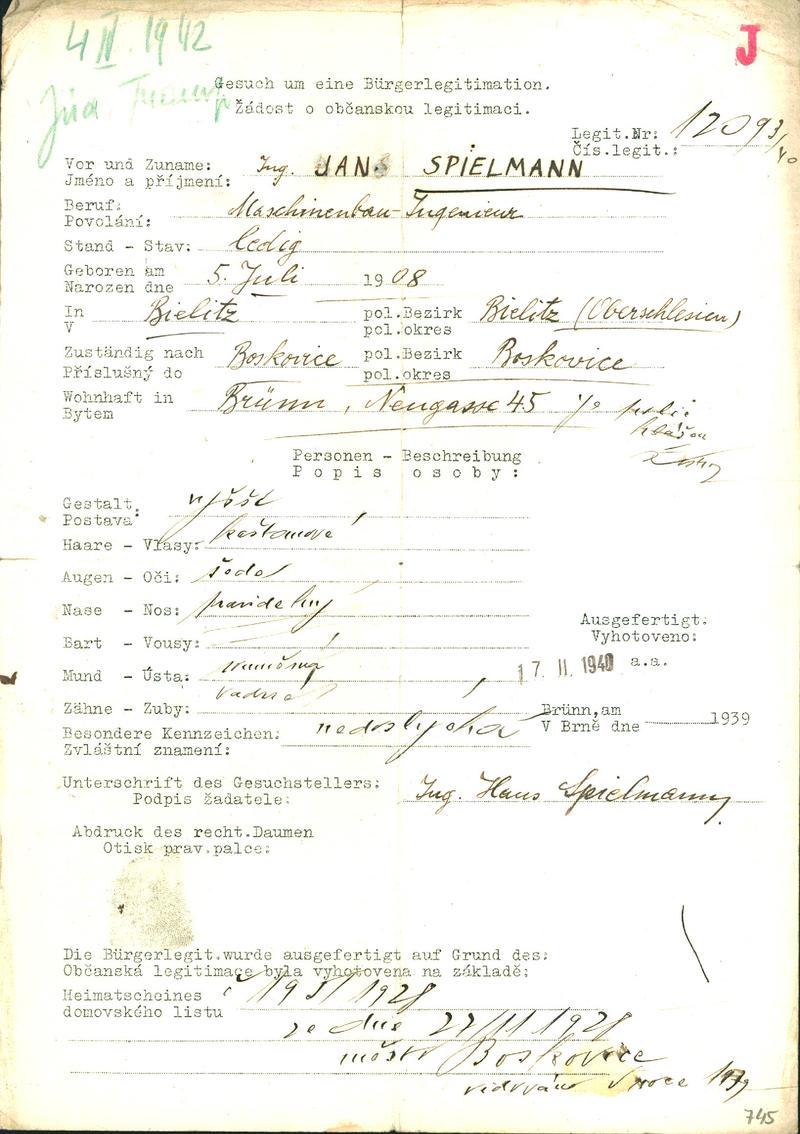 4 IV. 1942
J
Gesuch um eine Bürgerlegitimation.
Žádost o občanskou legitimaci.
Legit.Nr: 12093/40
Čís.legit.:
Vor und Zuname: Ing. JAN SPIELMANN
Jméno a příjmení:
Beruf: Maschinenbau-Ingenieur
Povolání:
Stand - Stav: ledig
Geboren am 5. Juli 1908
Narozen dne
In Bielitz pol.Bezirk Bielitz (Oberschlesien)
V pol.okres
Zuständig nach Boskovice pol.Bezirk Boskovice
Příslušný do pol.okres
Wohnhaft in Brünn, Neugasse 45
Bytem
Personen - Beschreibung
Popis osoby:
Gestalt:
Postava:
Haare - Vlasy: kaštanové
Augen - Oči: šedé
Nase - Nos: pravidelný
Ausgefertigt:
Vyhotoveno:
Bart - Vousy:
17. II. 1940 a.a.
Mund - Ústa:
Zähne - Zuby:
Brünn, am 1939
V Brně dne
Besondere Kennzeichen: nedoslýchá
Zvláštní znamení:
Unterschrift des Gesuchstellers: Ing. Hans Spielmann
Podpis žadatele:
Abdruck des recht.Daumen
Otisk prav.palce:
Die Bürgerlegit.wurde ausgefertigt auf Grund des:
Občanská legitimace byla vyhotovena na základě:
Heimatscheines 1928
domovského listu
ze dne 27/11 1928
Boskovice
745